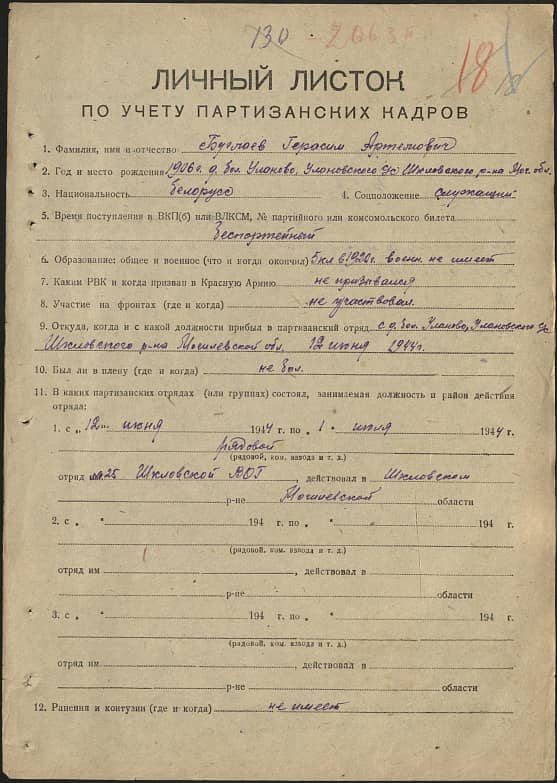 130 - 2663 п
18
ЛИЧНЫЙ ЛИСТОК
ПО УЧЕТУ ПАРТИЗАНСКИХ КАДРОВ
1. Фамилия, имя и отчество Буслаев Герасим Артемович
2. Год и место рождения 1906 г. д. Бол. Уланово, Улановского с/с Шкловского р-на Мог. обл.
3. Национальность Белорус 4. Соцположение служащий
5. Время поступления в ВКП(б) или ВЛКСМ, № партийного или комсомольского билета
Беспартейный
6. Образование: общее и военное (что и когда окончил) 5 кл в 1920 г. военн. не имеет
7. Каким РВК и когда призван в Красную Армию не призывался
8. Участие на фронтах (где и когда) не участвовал.
9. Откуда, когда и с какой должности прибыл в партизанский отряд с д. Бол. Уланово, Улановского с/с
Шкловского р-на Могилевской обл. 12 июня 1944 г.
10. Был ли в плену (где и когда) не был.
11. В каких партизанских отрядах (или группах) состоял, занимаемая должность и район действия
отряда:
1. с „ 12 " июня 1944 г. по „ 1 " июля 1944 г.
рядовой
(рядовой, ком. взвода и т. д.)
отряд 25 Шкловской ВОГ, действовал в Шкловском
р-не Могилевской области
2. с „ " 194 г. по „ " 194 г.
(рядовой, ком. взвода и т. д.)
отряд им , действовал в
р-не области
3. с „ " 194 г. по „ " 194 г.
(рядовой, ком. взвода и т. д.)
отряд им , действовал в
р-не области
12. Ранения и контузии (где и когда) не имеет